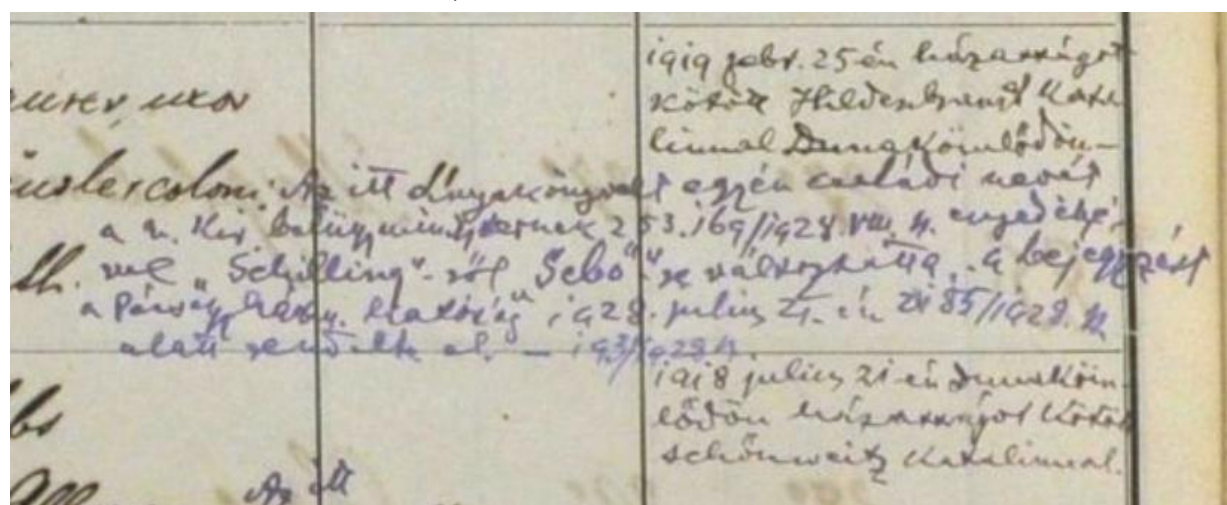 1919 febr. 25-én házasságot
kötött Hildenbrand Kata
linnal Dunakömlődön
uxor
colon. Az itt anyakönyvelt egyén családi nevét
a m. kir. belügyminiszternek 253.169/1928 VIII. sz. engedélyé-
vel „Schilling"-ről „Sebő"-re változtatta, a bejegyzést
a hatóság 1928. julius én 85/1928. sz.
alatt rendelte el. — 193/1928 sz
1918 julius 21-én Dunaköm-
lődön házasságot kötött
Schönweitz Katalinnal.
Az itt